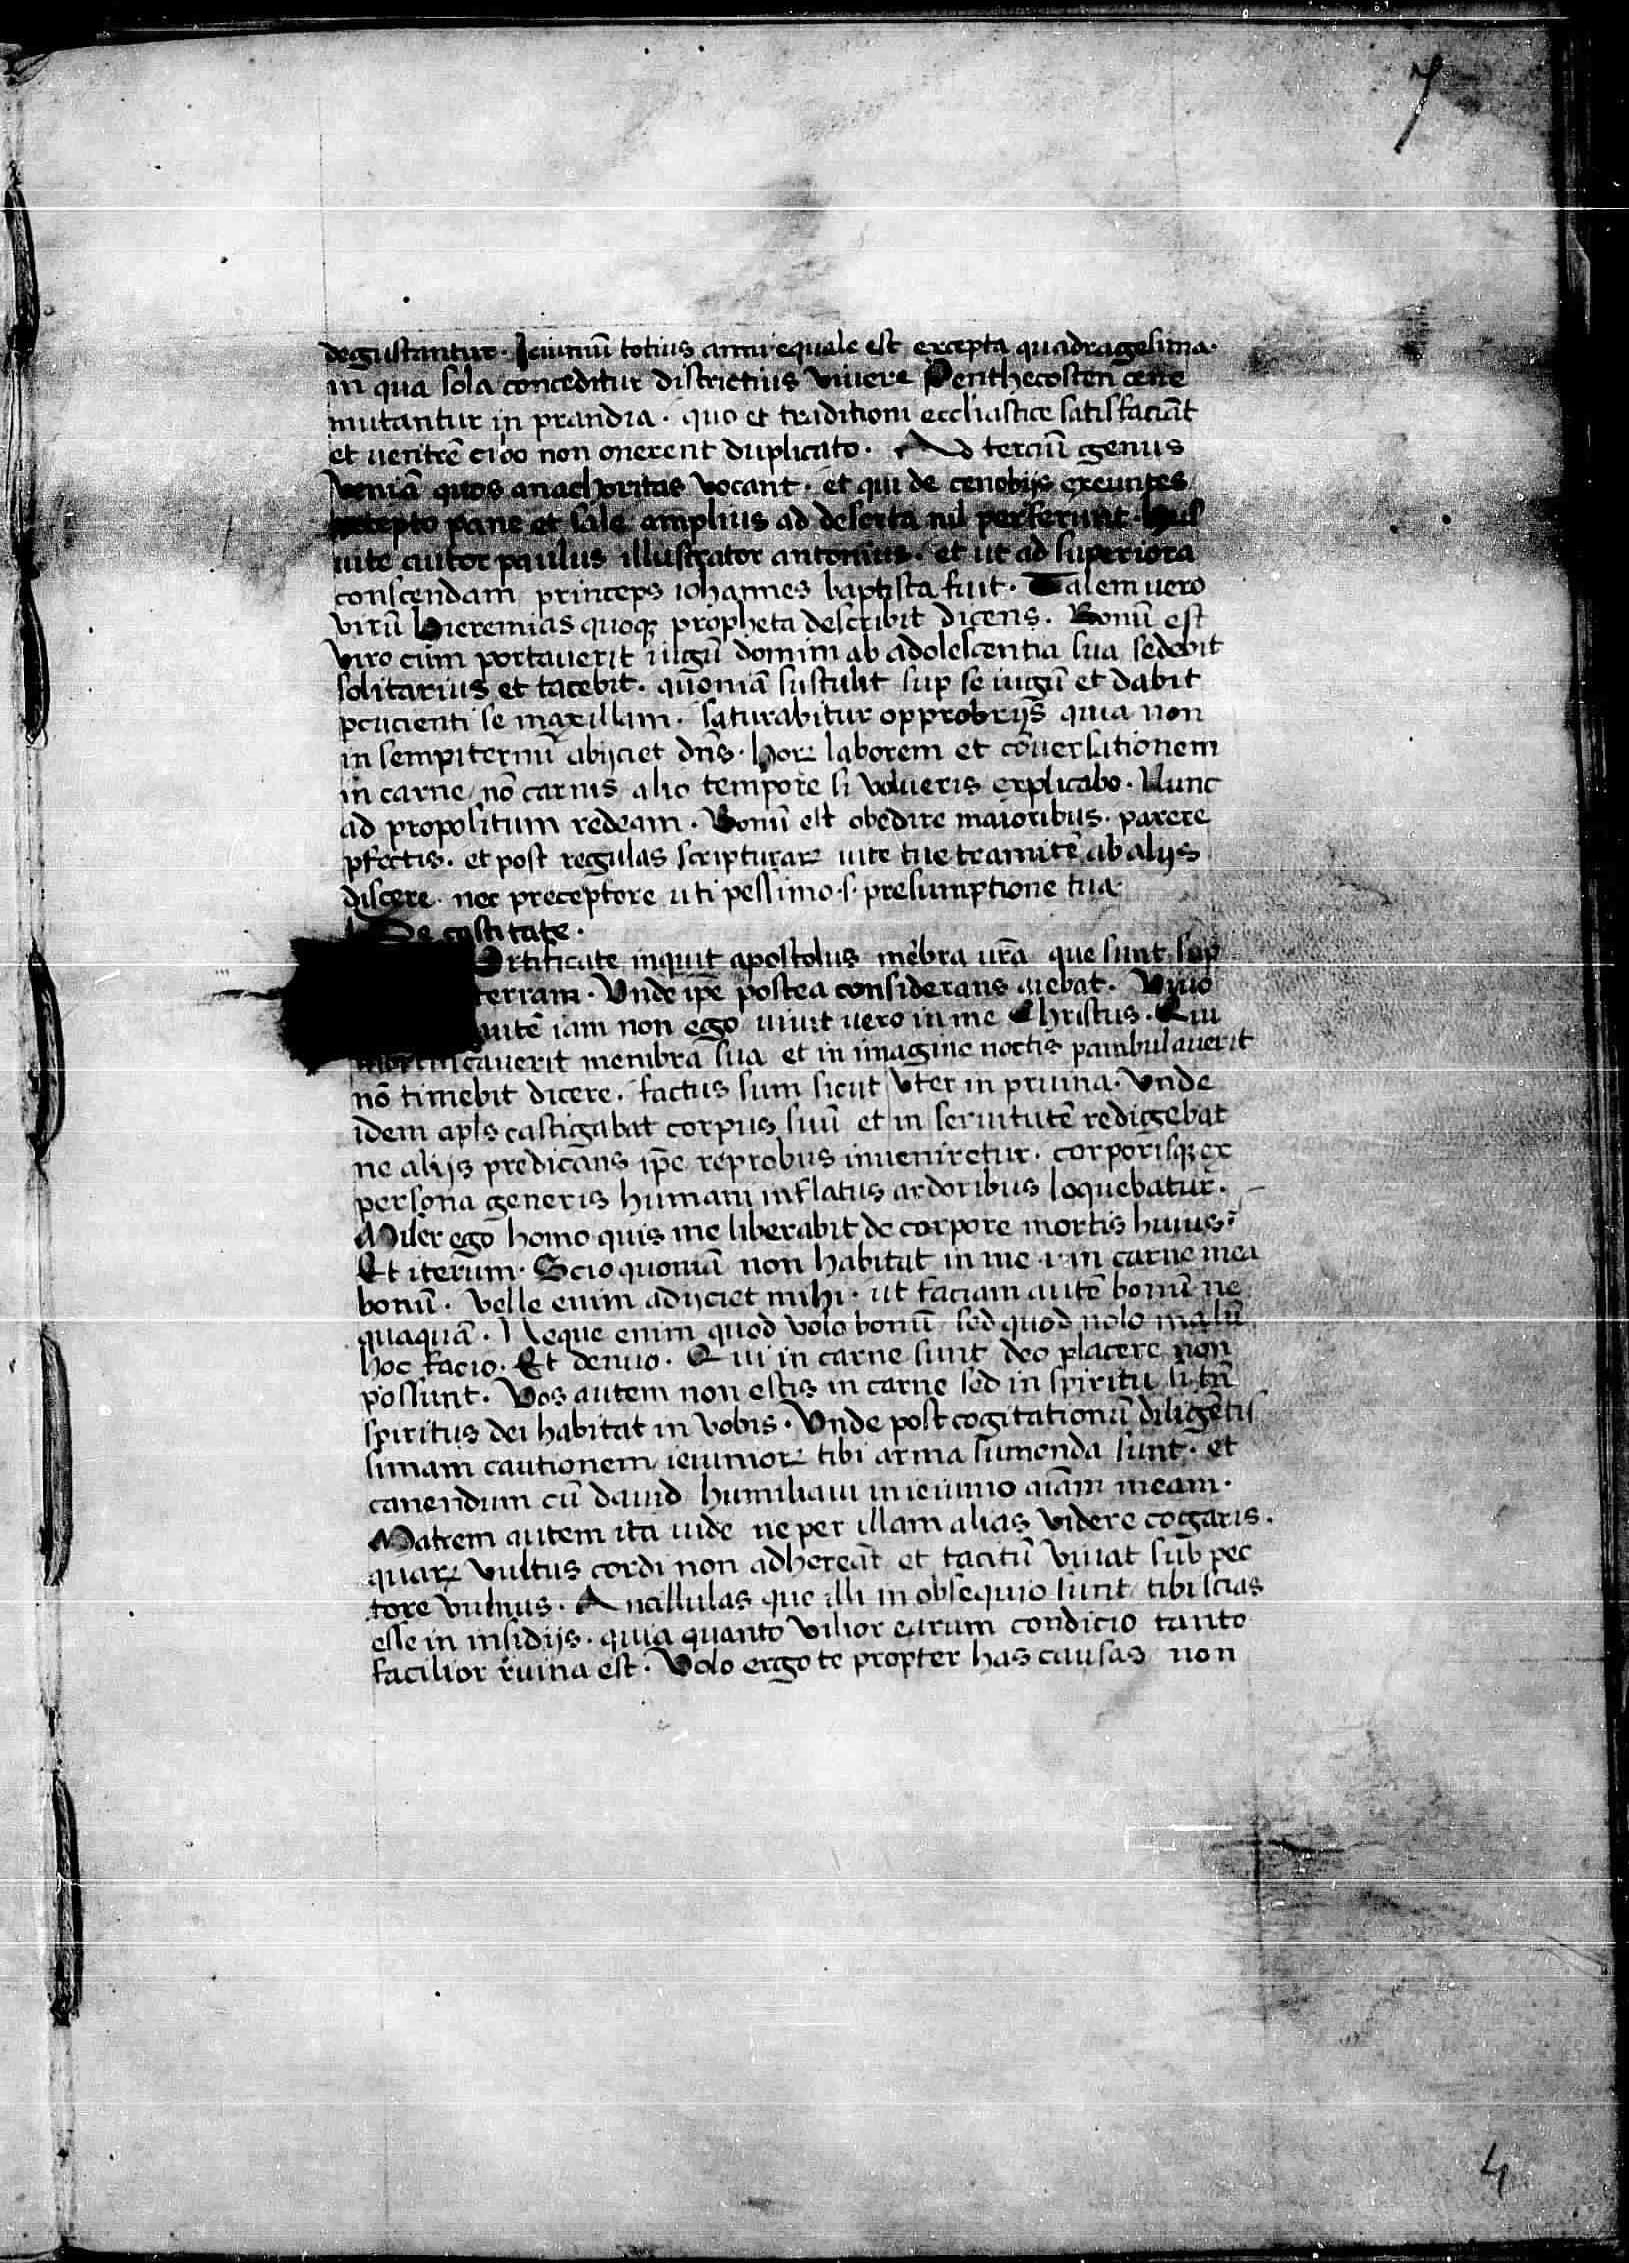 7
degustantur. Ieiuniū totius anni equale est excepta quadragesima.
in qua sola conceditur districtius vivere Penthecosten cene
mutantur in prandia. quo et traditioni eccliastice satisfaciāt
et uentrē cibo non onerent duplicato. Ad terciū genus
veniā quos anachoritas vocant. et qui de cenobijs exeuntes
excepto pane et sale amplius ad deserta nil perferunt. Huiˢ
uite autor paulus illustrator antonius. et ut ad superiora
conscendam princeps iohannes baptista fuit. Talem uero
virū Hieremias quoqꝫ propheta describit dicens. Bonū est
viro cum portauerit iugū domini ab adolescentia sua sedebit
solitarius et tacebit. quoniā sustulit suꝑ se iugū et dabit
ꝑcucienti se maxillam. saturabitur opprobrijs quia non
in sempiternū abijciet dn̄s. Hoꝝ laborem et cōuersationem
in carne nō carnis alio tempore si volueris explicabo. Nunc
ad propositum redeam. Bonū est obedire maioribus. parere
ꝑfectis. et post regulas scripturaꝝ uite tue tramitē ab alijs
discere. nec preceptore uti pessimo .s. presumptione tua.
De castitate.
Ortificate inquit apostolus mēbra ur̄a que sunt suꝑ
terram. Vnde ip̄e postea considerans aiebat. Viuo
autē iam non ego uiuit uero in me Christus. Qui
mortificauerit membra sua et in imagine noctis ꝑambulauerit
nō timebit dicere. factus sum sicut vter in pruina. Vnde
idem apl̄s castigabat corpus suū et in seruitutē redigebat
ne alijs predicans ip̄e reprobus inueniretur. corporisqꝫ ex
persona generis humani inflatus ardoribus loquebatur.
Miser ego homo quis me liberabit de corpore mortis huius?
Et iterum. Scio quoniā non habitat in me .i. in carne mea
bonū. Velle enim adijciet mihi. ut faciam autē bonū ne
quaquā. Neque enim quod volo bonū sed quod nolo malū
hoc facio. Et denuo. Qui in carne sunt deo placere non
possunt. Vos autem non estis in carne sed in spiritu si tn̄
spiritus dei habitat in vobis. Vnde post cogitationū diligētis
simam cautionem ieiunioꝝ tibi arma sumenda sunt. et
canendum cū dauid humiliaui in ieiunio aīam meam.
Matrem autem ita uide ne per illam alias videre cogaris.
quaꝝ vultus cordi non adhereāt et tacitū viuat sub pec
tore vulnus. Ancillulas que illi in obsequio sunt tibi scias
esse in insidijs. quia quanto vilior earum condicio tanto
facilior ruina est. Volo ergo te propter has causas non
4